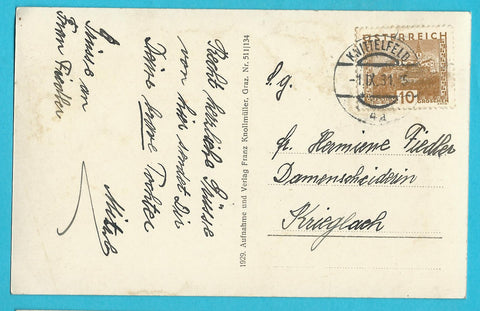 Grüsse an
Frau Fiedler.
Recht herzliche Grüsse
von hier sendet Dir
Deine Tochter
1929. Aufnahme und Verlag Franz Knollmüller, Graz. Nr. 511/134
ÖSTERREICH
10 GROSCHEN
KNITTELFELD
-1.IX.31
S.g.
fr. Hermiene Fiedler
Damenschneiderin
Krieglach